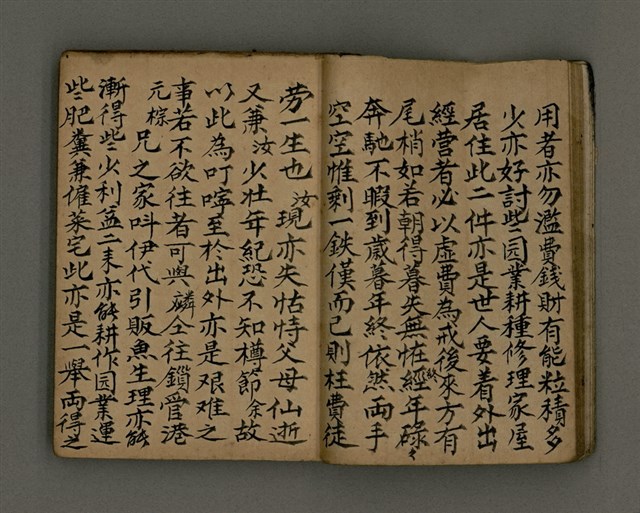 用者亦勿濫費錢財有能粒積多
少亦好討些园業耕種修理家屋
居住此二件亦是世人要着外出
經營者必以虛費為戒後來方有
尾梢如若朝得暮失無恠終經年碌々
奔馳不暇到歲暮年終依然両手
空空惟剩一鉄僕而已則枉費徒
劳一生也汝現亦失怙恃父母仙逝
又兼汝少壮年紀恐不知樽節余故
以此為叮嚀至於出外亦是艰难之
事若不欲往者可與麟仝往鎖管港
元棕兄之家呌伊代引販魚生理亦能
漸得些少利益二来亦能耕作园業運
些肥糞兼僱菜宅此亦是一舉両得之